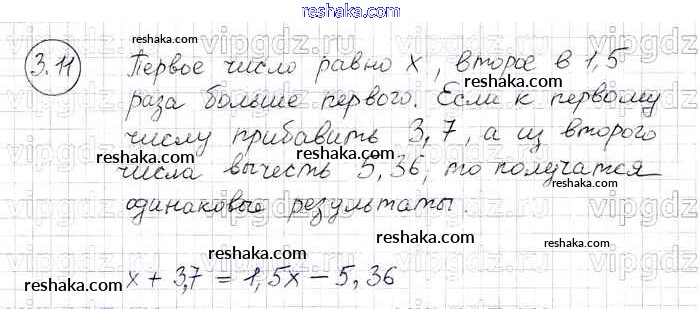 reshaka.com
3.11 Первое число равно x, второе в 1,5
раза больше первого. Если к первому
числу прибавить 3,7, а из второго
числа вычесть 5,36, то получатся
одинаковые результаты.
x + 3,7 = 1,5x - 5,36
reshaka.com
reshaka.com
reshaka.com
reshaka.com
reshaka.com
reshaka.com
reshaka.com
reshaka.com
vipgdz.ru
vipgdz.ru
vipgdz.ru